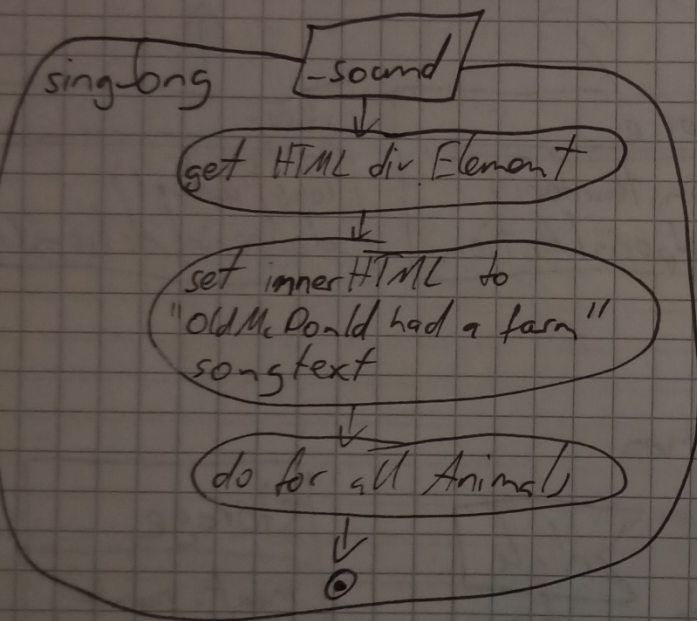 singSong
_sound
get HTML div Element
set innerHTML to
"Old McDonald had a farm"
songtext
do for all Animals